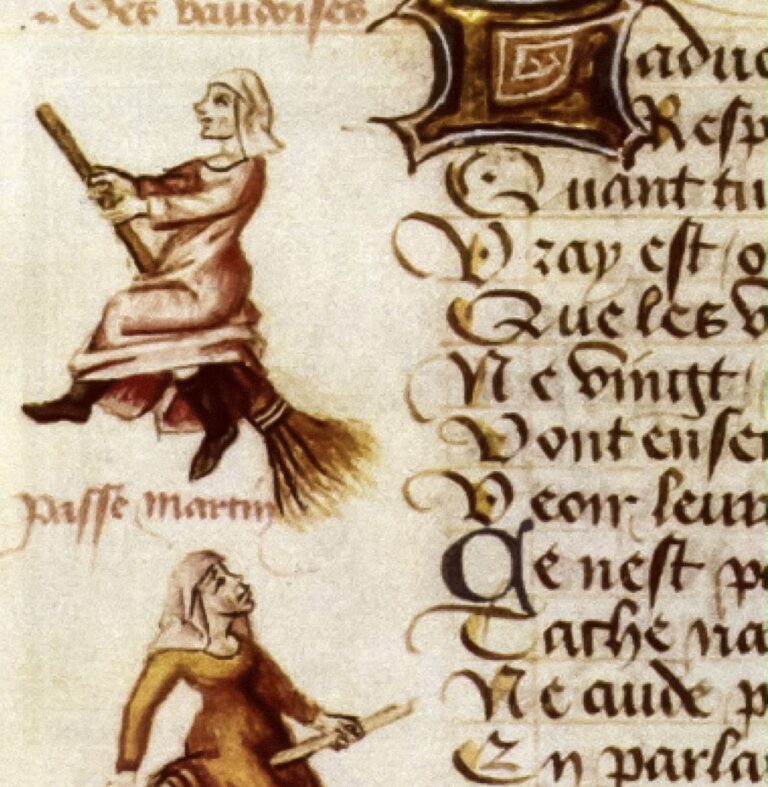 Des vaudoises
passe martin
adue
Resp
Quant tu
Vray est
Que les v
Ne vingt
Vont ense
Veoir leur
Ce nest p
Tache na
Ne cuide p
En parla